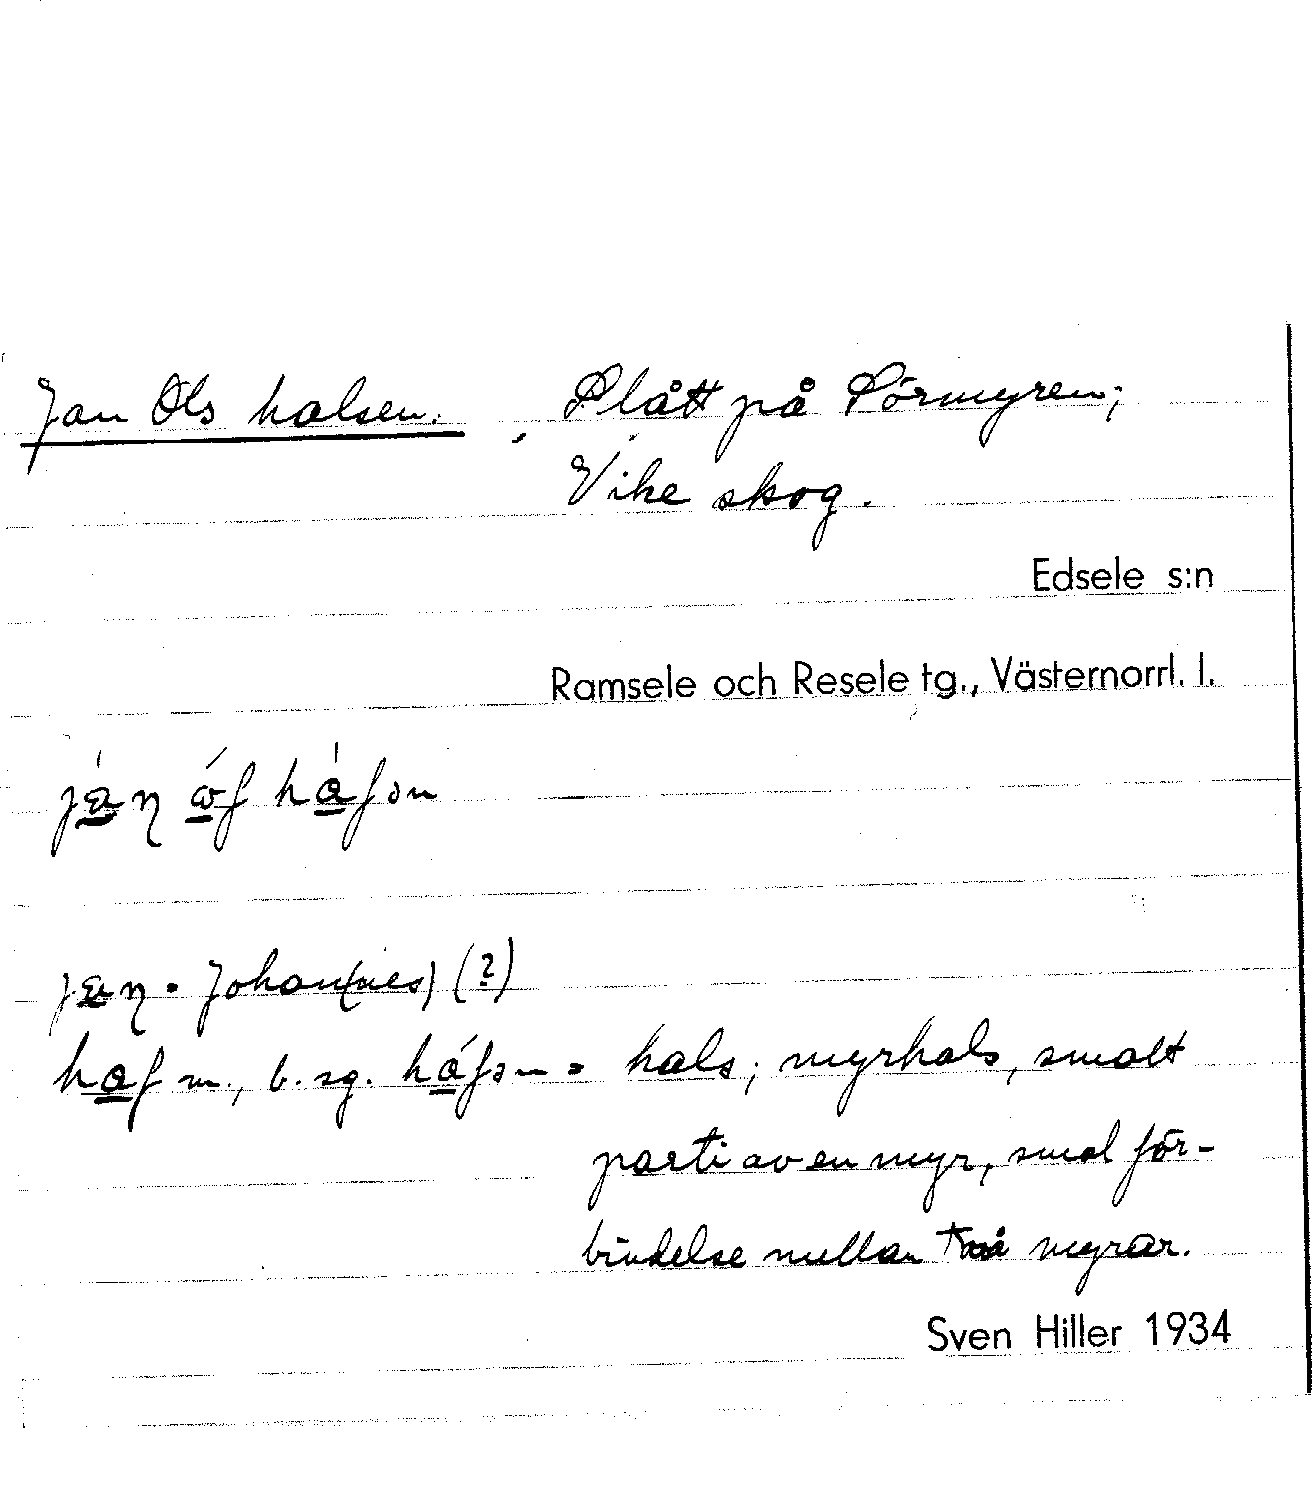 Jan Ols halsen. , Slått på Sörmyren;
Vike skog.
Edsele s:n
Ramsele och Resele tg., Västernorrl. l.
hɑʃ m., b. sg. hɑ́ʃən = hals; myrhals, smalt
parti av en myr, smal för-
bindelse mellan två myrar.
Sven Hiller 1934